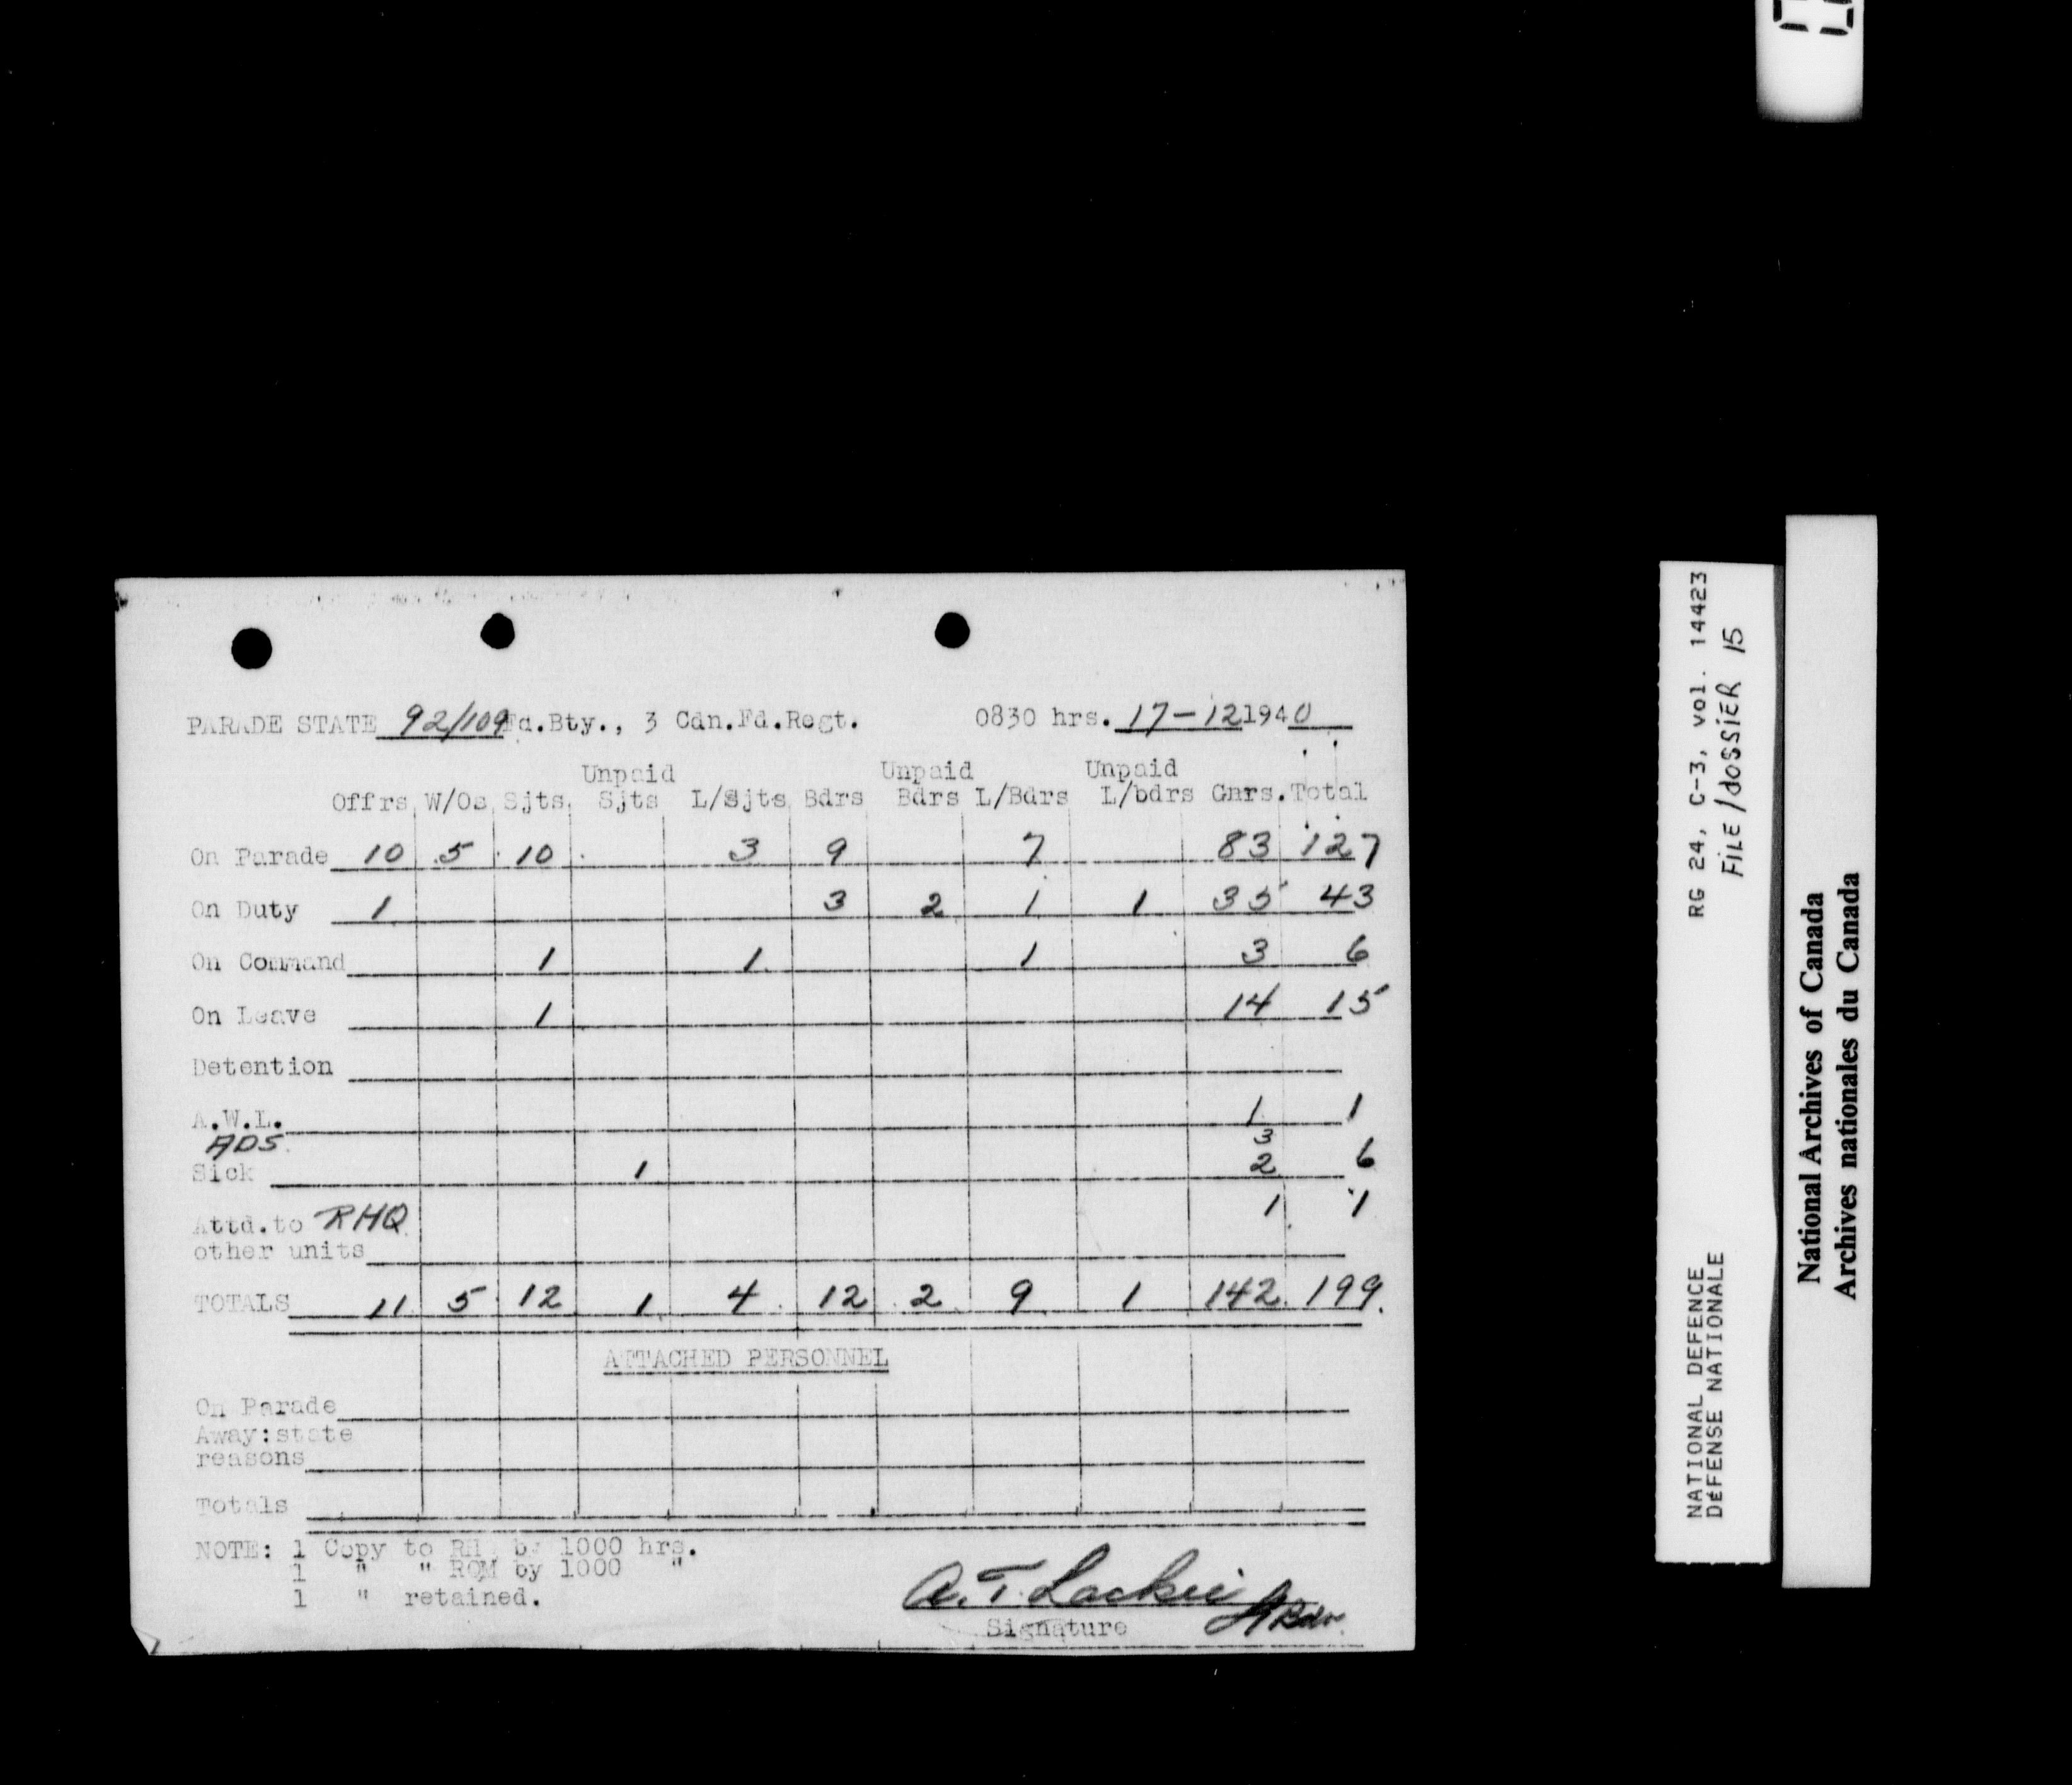 PARADE STATE 92/109 Fd.Bty., 3 Cdn.Fd.Regt. 0830 hrs. 17-12 1940
Unpaid Unpaid Unpaid
Offrs W/Os Sjts Sjts L/Sjts Bdrs Bdrs L/Bdrs L/bdrs Gnrs. Total
On Parade 10 5 10 3 9 7 83 127
On Duty 1 3 2 1 1 35 43
On Command 1 1 1 3 6
On Leave 1 14 15
Detention
A.W.L. 1 1
ADS 3
Sick 1 2 6
Attd.to RHQ 1 1
other units
TOTALS 11 5 12 1 4 12 2 9 1 142 199
ATTACHED PERSONNEL
On Parade
Away:state
reasons
Totals
NOTE: 1 Copy to RH by 1000 hrs.
1 " " RQM by 1000 "
1 " retained.
A.T. Lackie L/Bdr.
Signature
RG 24, C-3, vol. 14423
FILE/DOSSIER 15
NATIONAL DEFENCE
DÉFENSE NATIONALE
National Archives of Canada
Archives nationales du Canada